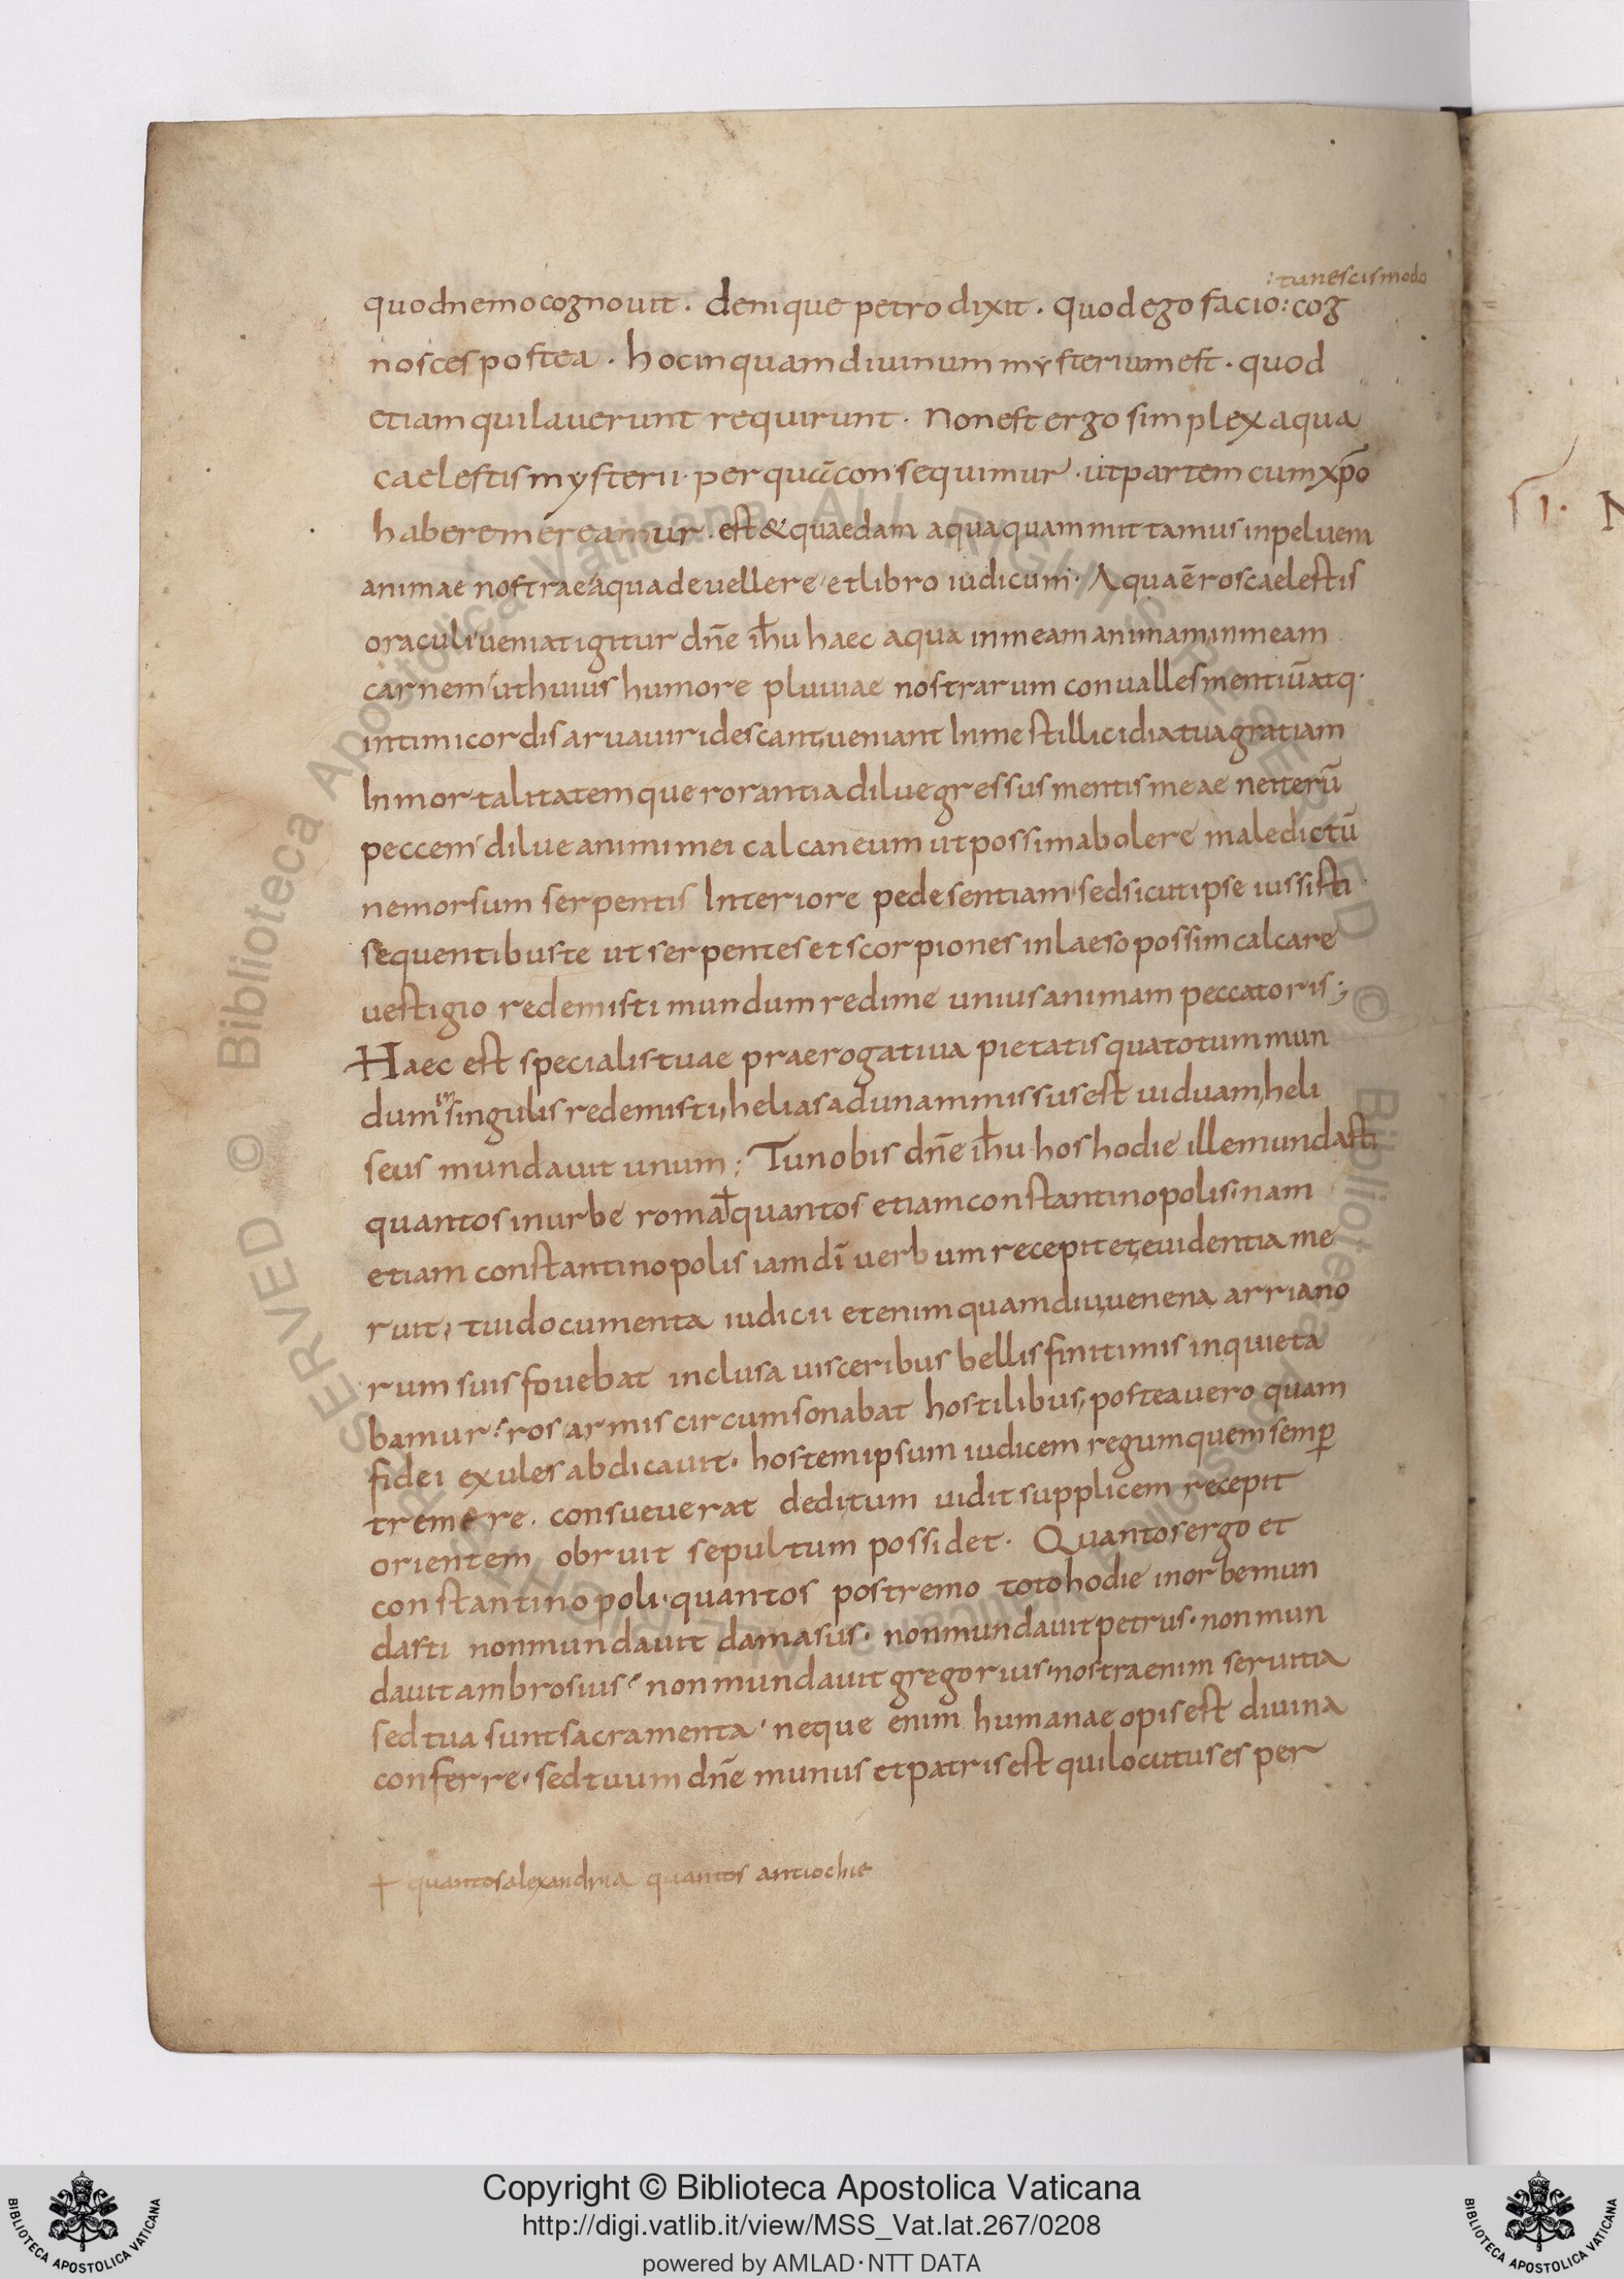 : tu nescis modo
quod nemo cognouit . denique petro dixit . quod ego facio : cog
nosces postea . hoc inquam diuinum mysterium est . quod
etiam qui lauerunt requirunt . Non est ergo simplex aqua
caelestis mysterii . per quā consequimur . ut partem cum xp̄o
habere mereamur . est & quaedam aqua quam mittamus in peluem
animae nostrae aqua de uellere et libro iudicum . Aqua ē ros caelestis
oraculi ueniat igitur dn̄e ih̄u haec aqua in meam animam in meam
carnem ut huius humore pluuiae nostrarum conualles mentiū atq·
intimi cordis arua uiridescant, ueniant In me stillicidia tua gratiam
Inmortalitatemque rorantia dilue gressus mentis meae ne iterū
peccem dilue animi mei calcaneum ut possim abolere maledictū
ne morsum serpentis Interiore pede sentiam sed sicut ipse iussisti
sequentibus te ut serpentes et scorpiones inlaeso possim calcare
uestigio redemisti mundum redime unius animam peccatoris ;
Haec est specialis tuae praerogatiua pietatis qua totum mun
dum in singulis redemisti, helias ad unam missus est uiduam, heli
seus mundauit unum ; Tu nobis dn̄e ih̄u hos hodie ille mundasti
quantos in urbe roma † quantos etiam constantinopolis · nam
etiam constantinopolis iam dī uerbum recepit et euidentia me
ruit, tui documenta iudicii etenim quamdiu, uenena arriano
rum suis fouebat inclusa uisceribus bellis finitimis inquieta
bamur . ros armis circumsonabat hostilibus, postea uero quam
fidei exules abdicauit . hostem ipsum iudicem regum quem semp̄
tremere . consueuerat deditum uidit supplicem recepit
orientem obruit sepultum possidet . Quantos ergo et
constantinopoli · quantos postremo toto hodie in orbe mun
dasti non mundauit damasus . non mundauit petrus . non mun
dauit ambrosius non mundauit gregorius · nostra enim seruitia
sed tua sunt sacramenta · neque enim humanae opis est diuina
conferre · sed tuum dn̄e munus et patris est qui locutus es per
† quantos alexandria quantos antiochie
ſſ1. N
Copyright © Biblioteca Apostolica Vaticana
http://digi.vatlib.it/view/MSS_Vat.lat.267/0208
powered by AMLAD · NTT DATA
BIBLIOTECA APOSTOLICA VATICANA
BIBLIOTECA APOSTOLICA VATICANA